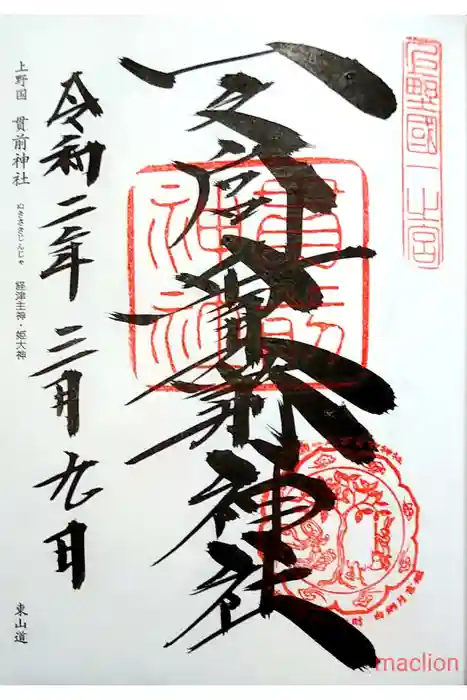 上野國一之宮
一之宮貫前神社
貫前
神社
令和二年三月九日
上野国 貫前神社 経津主神・姫大神
ぬきさきじんじゃ
東山道
maclion